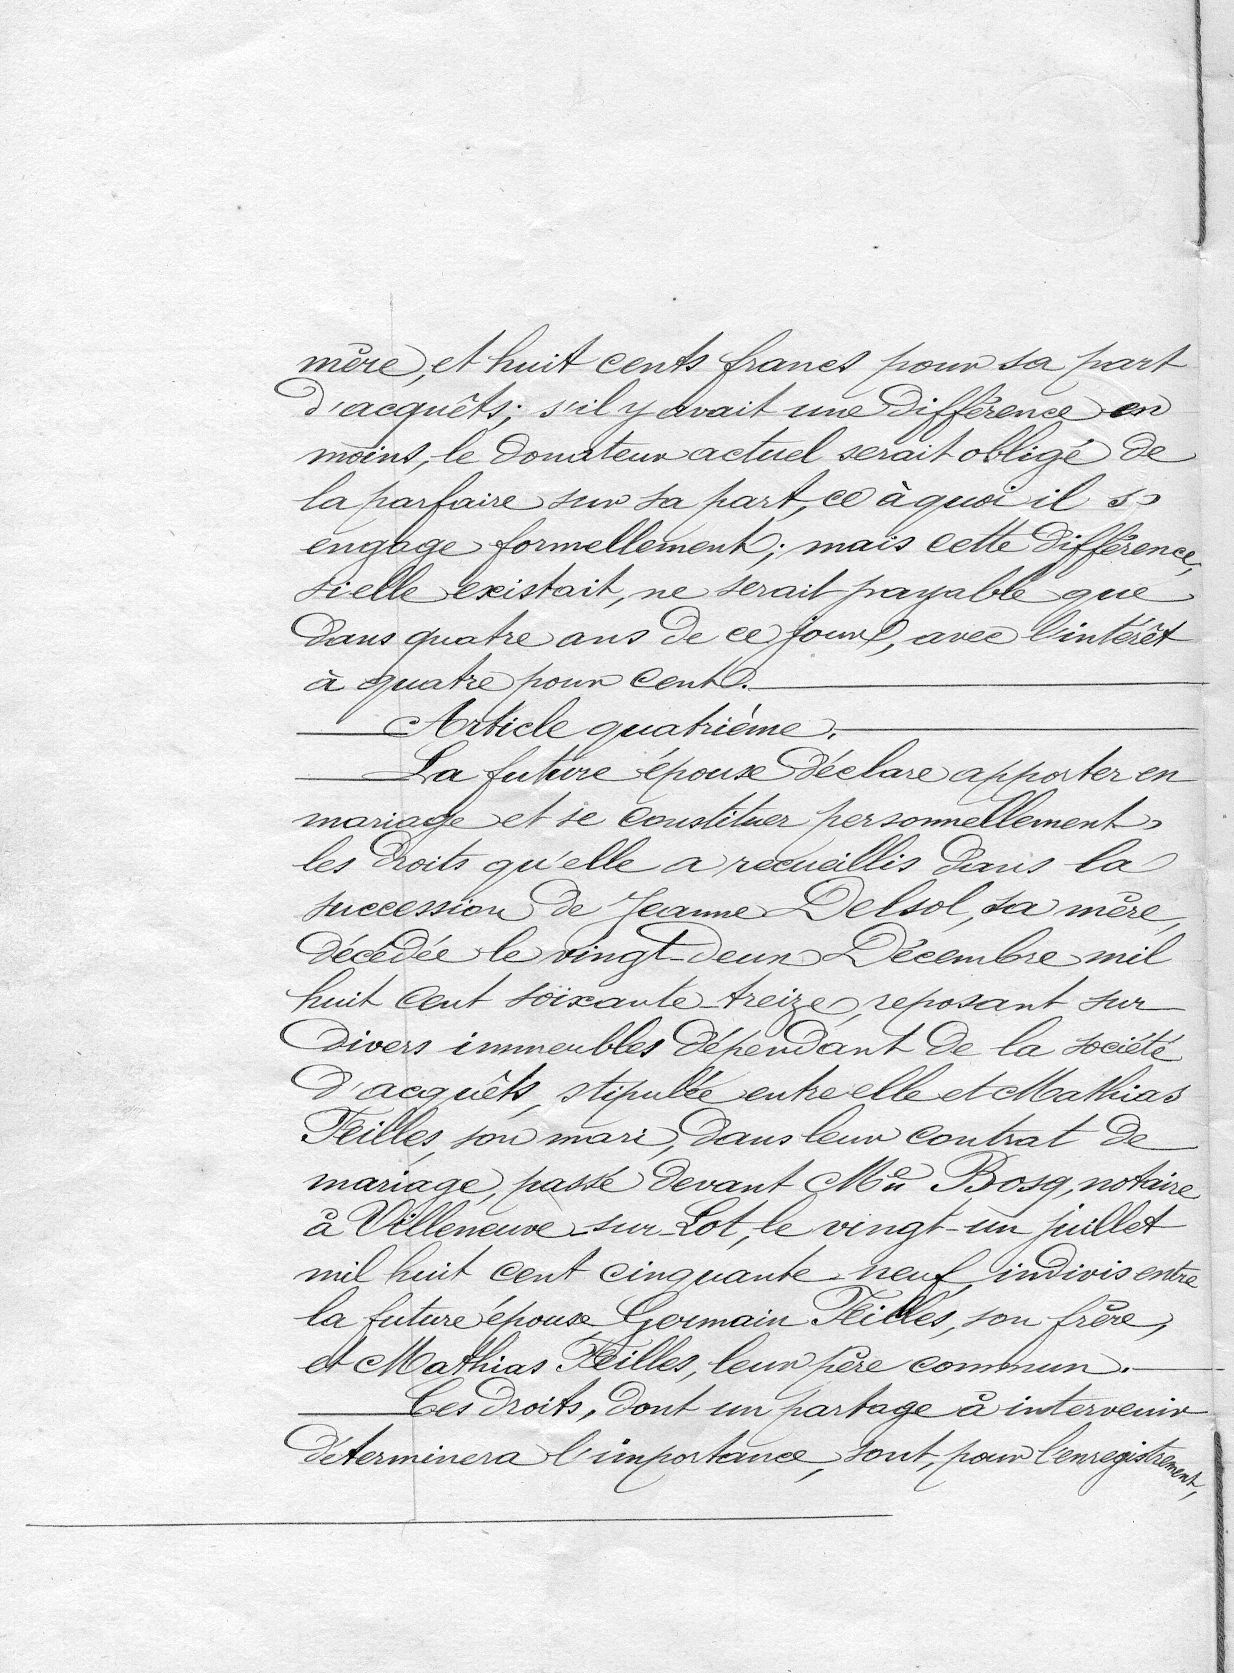 mère, et huit cents francs pour sa part
d'acquêts; s'il y avait une différence en
moins, le donateur actuel serait obligé de
la parfaire sur sa part, ce à quoi il s'
engage formellement; mais cette différence,
si elle existait, ne serait payable que
dans quatre ans de ce jour, avec l'intérêt
à quatre pour cent.
Article quatrième.
La future épouse déclare apporter en
mariage et se constituer personnellement
les droits qu'elle a recueillis dans la
succession de Jeanne Delsol, sa mère,
décédée le vingt-deux Décembre mil
huit cent soixante-treize, reposant sur
divers immeubles dépendant de la société
d'acquêts, stipulée entre elle et Mathias
Feilles, son mari, dans leur contrat de
mariage, passé devant Me Bosq, notaire
à Villeneuve-sur-Lot, le vingt-un juillet
mil huit cent cinquante-neuf, indivis entre
la future épouse Germain Feilles, son frère,
et Mathias Feilles, leur père commun.
Ces droits, dont un partage à intervenir
déterminera l'importance, sont, pour l'enregistrement,